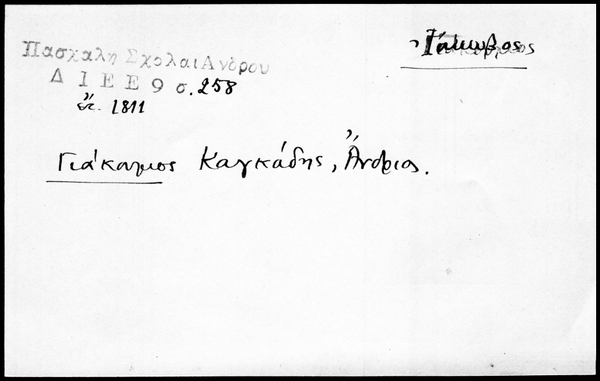 Πασχαλη Σχολαι Ανδρου
Δ Ι Ε Ε 9 σ. 258
ἔτ. 1811
Ἰάκωβος
Γιάκουμος Καγκάδης, Ἄνδριος.